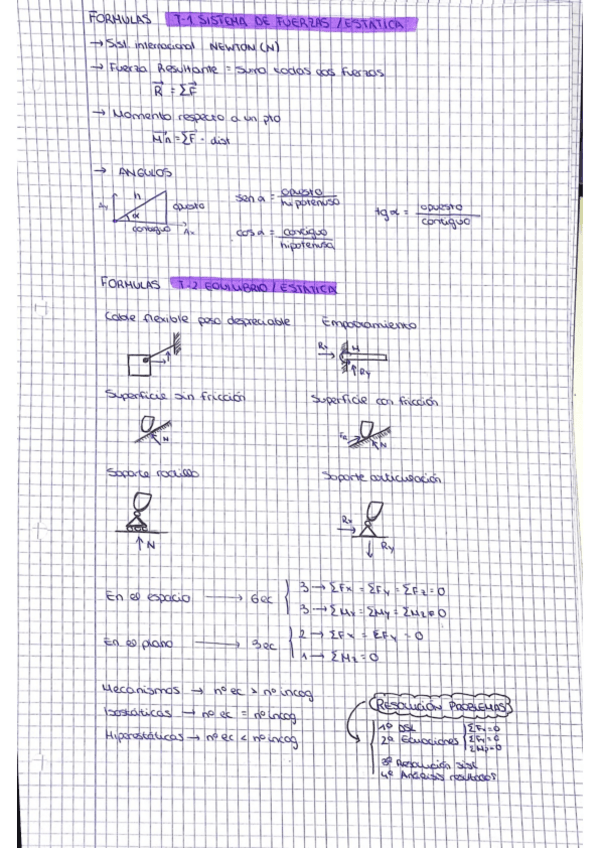 FORMULAS T-1 SISTEMA DE FUERZAS / ESTATICA
→ Sist. internacional NEWTON (N)
→ Fuerza Resultante = suma todas las fuerzas
R⃗ = ΣF⃗
→ Momento respecto a un pto
M⃗n = ΣF⃗ · dist
→ ANGULOS
Ay h opuesto α contiguo Ax
sen α = opuesto / hipotenusa
cos α = contiguo / hipotenusa
tg α = opuesto / contiguo
FORMULAS T-2 EQUILIBRIO / ESTATICA
Cable flexible peso despreciable Empotramiento
Rx M Ry
Superficie sin fricción Superficie con fricción
N N
Soporte rodillo Soporte articulación
N Rx Ry
En el espacio → 6 ec { 3 → ΣFx = ΣFy = ΣFz = 0
3 → ΣMx = ΣMy = ΣMz = 0
En el plano → 3 ec { 2 → ΣFx = ΣFy = 0
1 → ΣMz = 0
Mecanismos → nº ec > nº incog
Isostáticas → nº ec = nº incog
Hiperestáticas → nº ec < nº incog
RESOLUCIÓN PROBLEMAS
1º DSL
2º Ecuaciones { ΣFx = 0
ΣFy = 0
ΣM = 0
3º Resolución sist
4º Análisis resultados